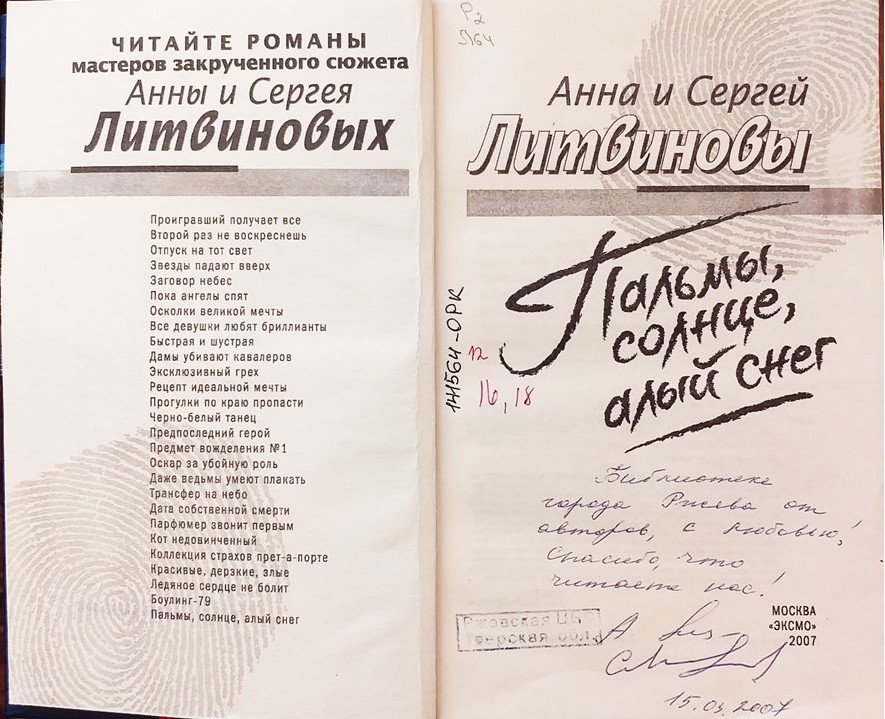 ЧИТАЙТЕ РОМАНЫ
мастеров закрученного сюжета
Анны и Сергея
Литвиновых
Проигравший получает все
Второй раз не воскреснешь
Отпуск на тот свет
Звезды падают вверх
Заговор небес
Пока ангелы спят
Осколки великой мечты
Все девушки любят бриллианты
Быстрая и шустрая
Дамы убивают кавалеров
Эксклюзивный грех
Рецепт идеальной мечты
Прогулки по краю пропасти
Черно-белый танец
Предпоследний герой
Предмет вожделения №1
Оскар за убойную роль
Даже ведьмы умеют плакать
Трансфер на небо
Дата собственной смерти
Парфюмер звонит первым
Кот недовинченный
Коллекция страхов прет-а-порте
Красивые, дерзкие, злые
Ледяное сердце не болит
Боулинг-79
Пальмы, солнце, алый снег
Р2
Л64
Анна и Сергей
Литвиновы
Пальмы,
солнце,
алый снег
141564-ОРК
12
16, 18
Библиотеке
города Ржева от
авторов, с любовью!
Спасибо, что
читаете нас!
Ржевская ЦБ
Тверская обл.
МОСКВА
«ЭКСМО»
2007